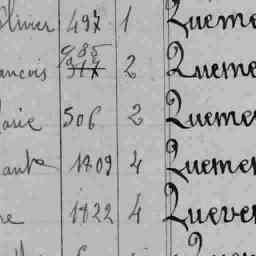 Olivier 497 1 Queme
985
ancois 317 2 Queme
Marie 506 2 Queme
1409 4 Queme
1122 4 Queve